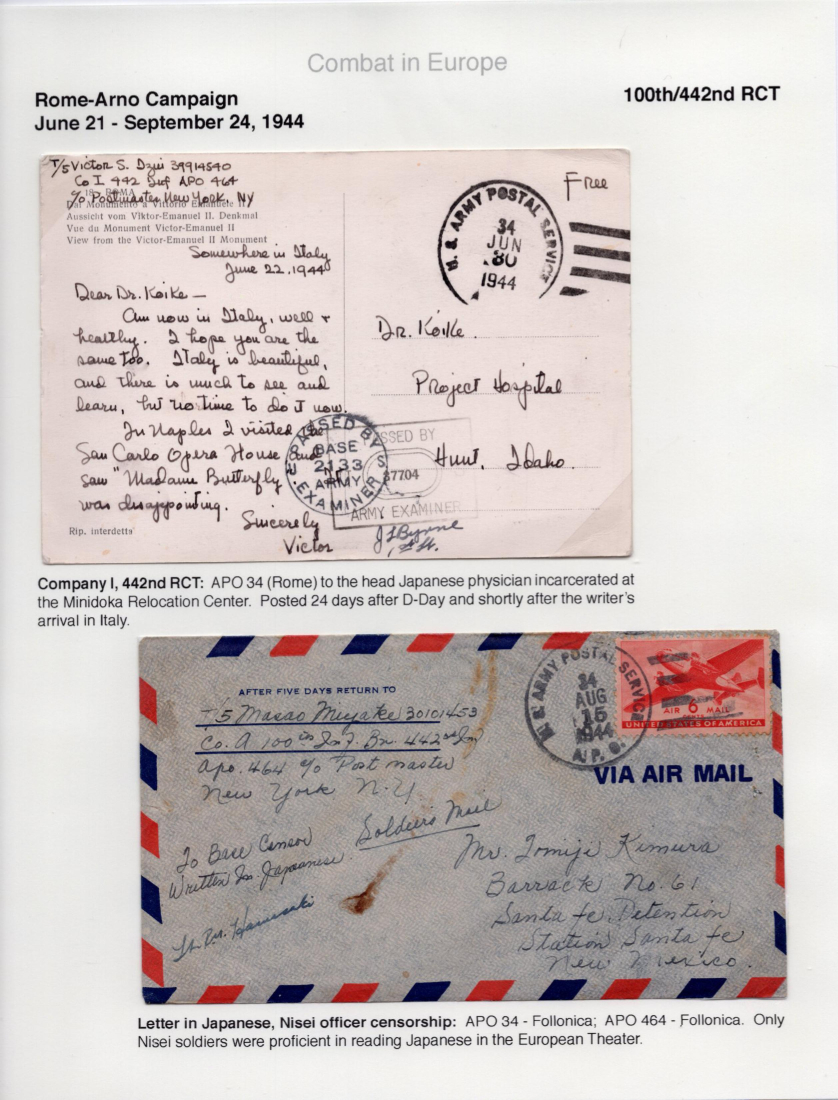 Combat in Europe
Rome-Arno Campaign
June 21 - September 24, 1944
100th/442nd RCT
T/5 Victor S. Izui 39914540
Co I 442 Inf APO 464
c/o Postmaster New York, NY
18 - ROMA
Dal Monumento a Vittorio Emanuele II
Aussicht vom Viktor-Emanuel II. Denkmal
Vue du Monument Victor-Emanuel II
View from the Victor-Emanuel II Monument
Somewhere in Italy
June 22, 1944
Dear Dr. Koike —
Am now in Italy, well +
healthy. I hope you are the
same too. Italy is beautiful,
and there is much to see and
learn, but no time to do it now.
In Naples I visited the
San Carlo Opera House and
saw "Madame Butterfly".
was disappointing.
Sincerely
Victor
Rip. interdetta
U. S. ARMY POSTAL SERVICE
34
JUN
30
1944
Free
Dr. Koike
Project Hospital
Hunt, Idaho.
PASSED BY
BASE
2133
ARMY
EXAMINER
U S
PASSED BY
37704
ARMY EXAMINER
J L Byrne
1st Lt.
Company I, 442nd RCT: APO 34 (Rome) to the head Japanese physician incarcerated at
the Minidoka Relocation Center. Posted 24 days after D-Day and shortly after the writer's
arrival in Italy.
AFTER FIVE DAYS RETURN TO
T/5 Masao Miyake 30101453
Co. A 100th Inf Bn 442nd Inf
Apo. 464 c/o Post master
New York N.Y.
Soldiers Mail
To Base Censor
Written In Japanese
U. S. ARMY POSTAL SERVICE
34
AUG
15
1944
A. P. O.
AIR 6 MAIL
CENTS
UNITED STATES OF AMERICA
VIA AIR MAIL
Mr. Tomiji Kimura
Barrack No. 61
Santa fe Detention
Station Santa fe
New Mexico.
Letter in Japanese, Nisei officer censorship: APO 34 - Follonica; APO 464 - Follonica. Only
Nisei soldiers were proficient in reading Japanese in the European Theater.